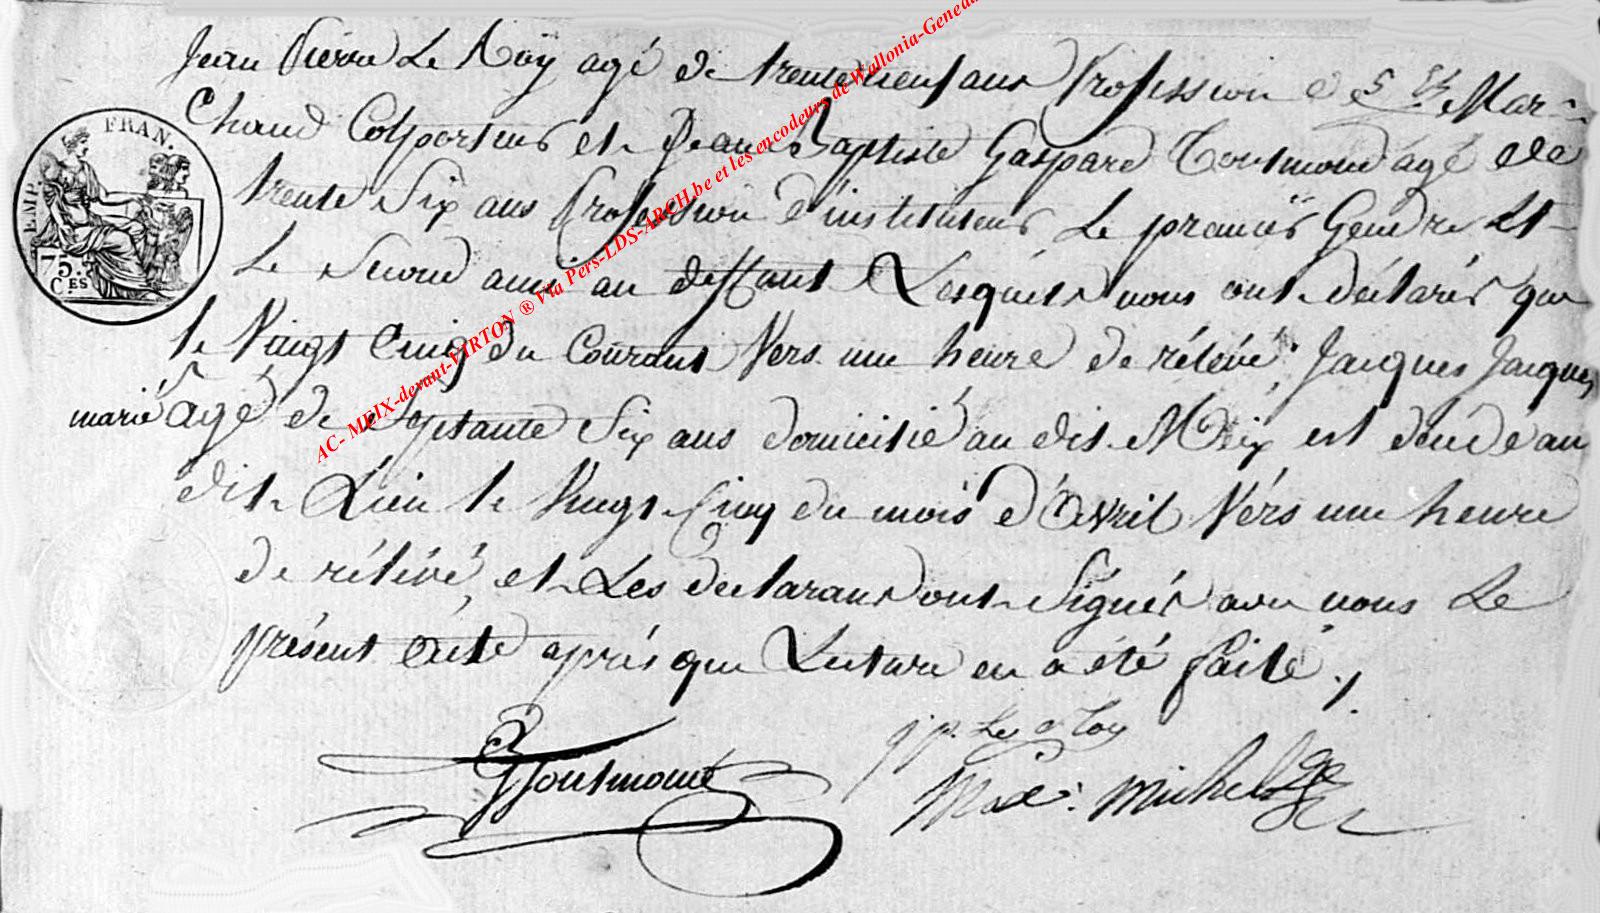 Jean Pierre Le Roÿ agé de trente neuf ans Profession de Mar-
Chand Colporteur et Jean Baptiste Gaspard Toutmond agé de
trente Six ans Profession d'instituteur Le premier Gendre Et
Le Second ami au deffunt Lesquels nous ont déclarés que
le Vingt Cinq du Courant Vers une heure de rélévé, Jacques Jacques
marié agé de Septante Six ans domicilié au dit Meix est décédé au
dit Lieu le Vingt Cinq du mois d'Avril Vérs une heure
de rélévé, et Les déclarans ont Signés avec nous Le
présent acte aprés que Lecture en a été faite ./.
j p Le Roy
Toutmond
Michel
EMP. FRAN.
75. C.ES
AC- MEIX-devant-VIRTON ® Via Pers-LDS-ARCH.be et les encodeurs de Wallonia-Genea